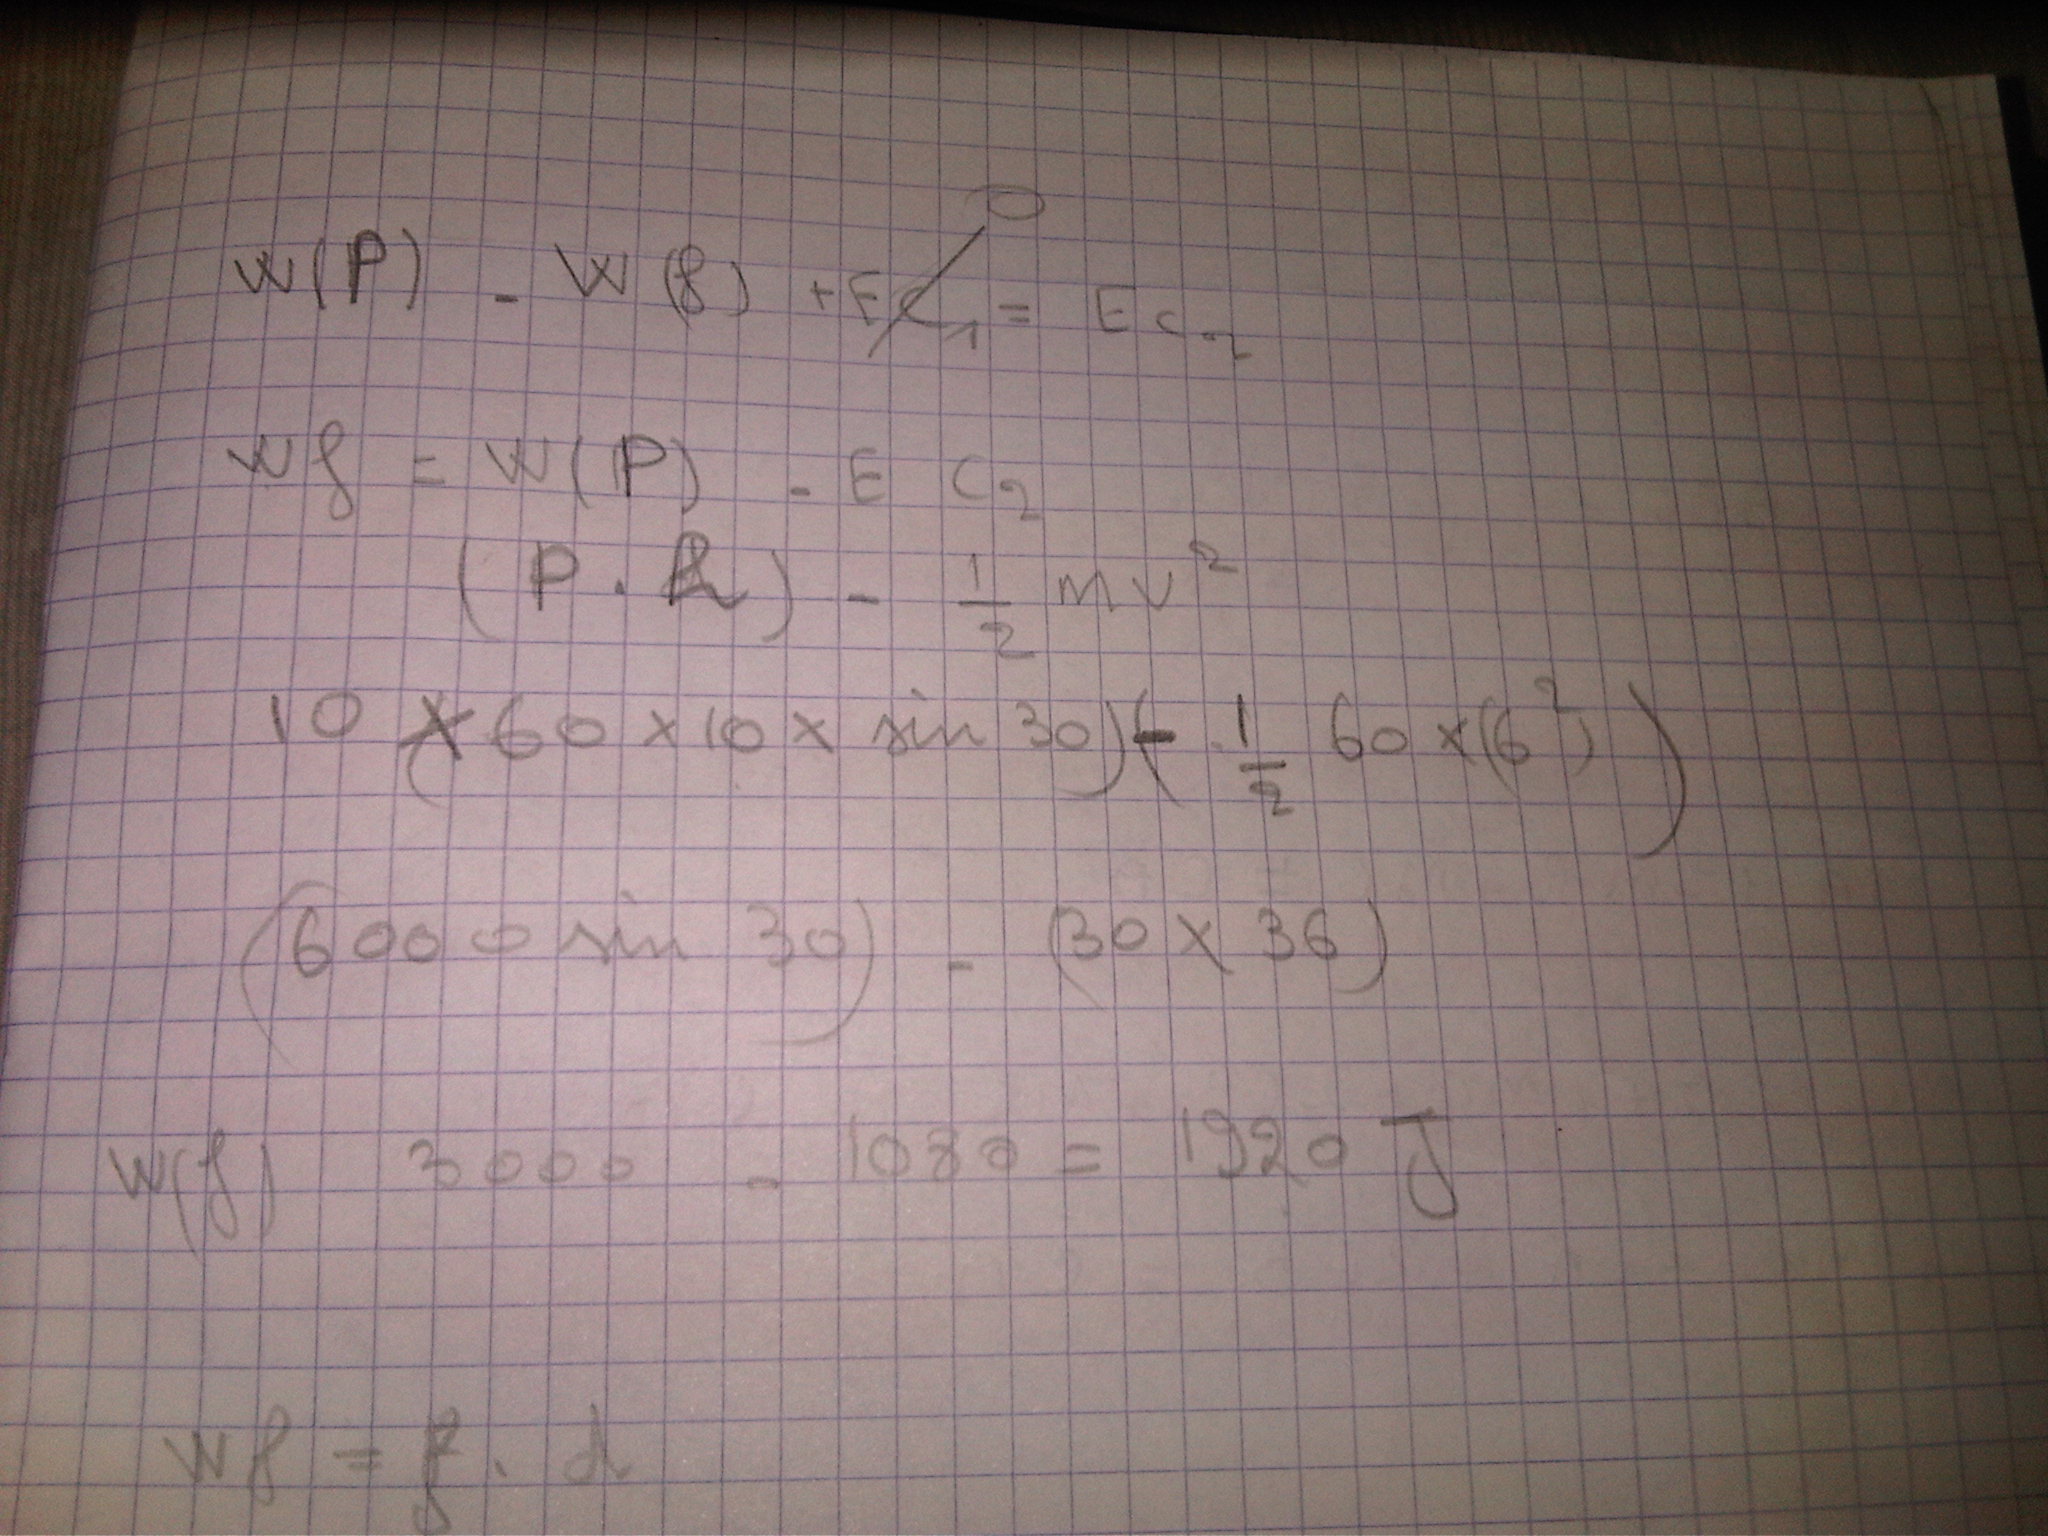 W(P) - W(f) + EC₁ = EC₂ 0
Wf = W(P) - EC₂
(P . h) - 1/2 mv²
10 x (60 x 10 x sin 30) (- 1/2 60 x (6²))
(6000 sin 30) - (30 x 36)
W(f) 3000 - 1080 = 1920 J
Wf = f . d